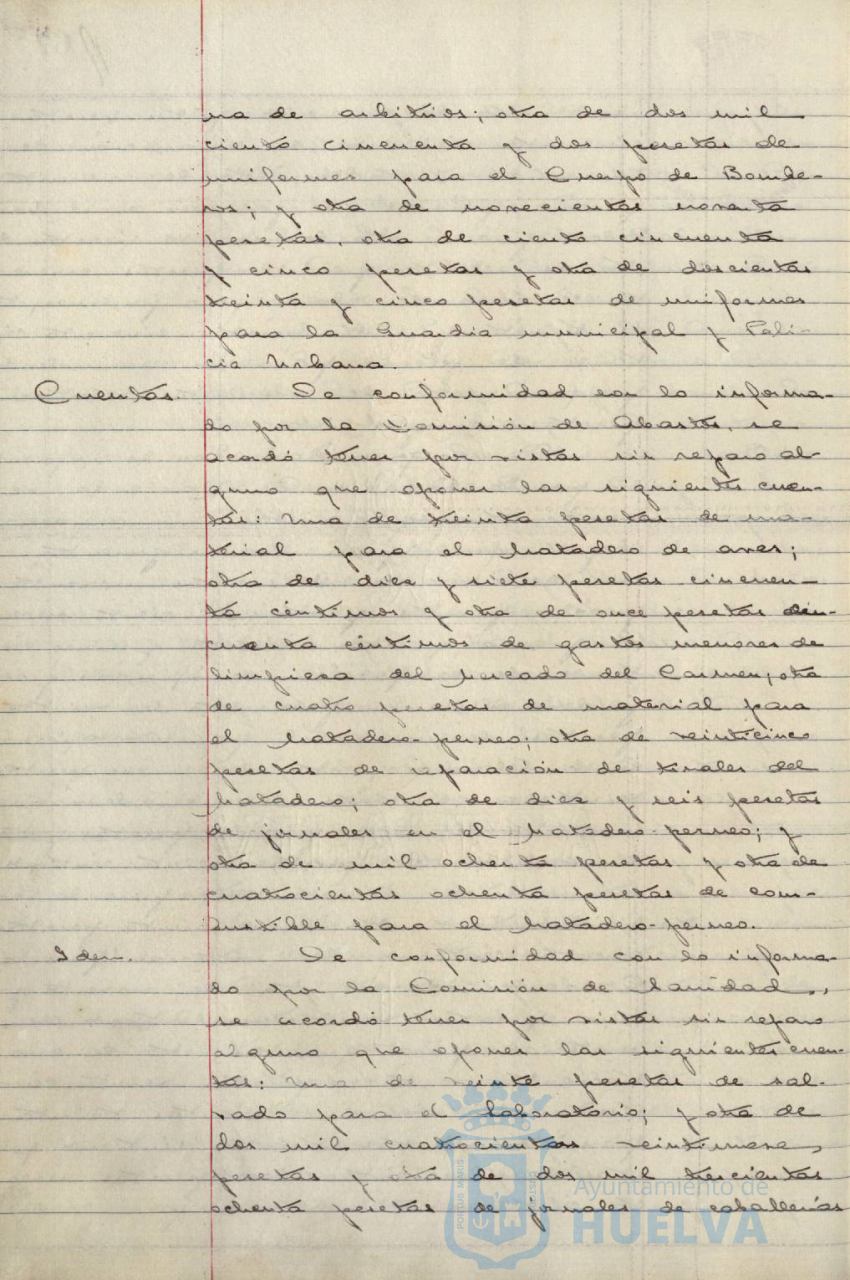 na de arbitrios; otra de dos mil
ciento cincuenta y dos pesetas de
uniformes para el Cuerpo de Bombe-
ros; y otra de novecientas noventa
pesetas, otra de ciento cincuenta
y cinco pesetas y otra de doscientas
treinta y cinco pesetas de uniformes
para la Guardia municipal y Poli-
cia Urbana.
Cuentas. De conformidad con lo informa-
do por la Comisión de Abastos, se
acordó tener por vistas sin reparo al-
guno que oponer las siguientes cuen-
tas: Una de treinta pesetas de ma-
terial para el Matadero de aves;
otra de diez y siete pesetas cincuen-
ta céntimos y otra de once pesetas cin-
cuenta céntimos de gastos menores de
limpieza del Mercado del Carmen; otra
de cuatro pesetas de material para
el Matadero-perneo; otra de veinticinco
pesetas de reparación de tirales del
Matadero; otra de diez y seis pesetas
de jornales en el Matadero-perneo; y
otra de mil ochenta pesetas y otra de
cuatrocientas ochenta pesetas de com-
bustible para el Matadero-perneo.
Idem. De conformidad con lo informa-
do por la Comisión de Sanidad,
se acordó tener por vistas sin reparo
alguno que oponer las siguientes cuen-
tas: Una de veinte pesetas de sal-
vado para el Laboratorio; y otra de
dos mil cuatrocientas veintinueve
pesetas y otra de dos mil trescientas
ochenta pesetas de jornales de caballerías
PORTUS MARIS
Ayuntamiento de
HUELVA